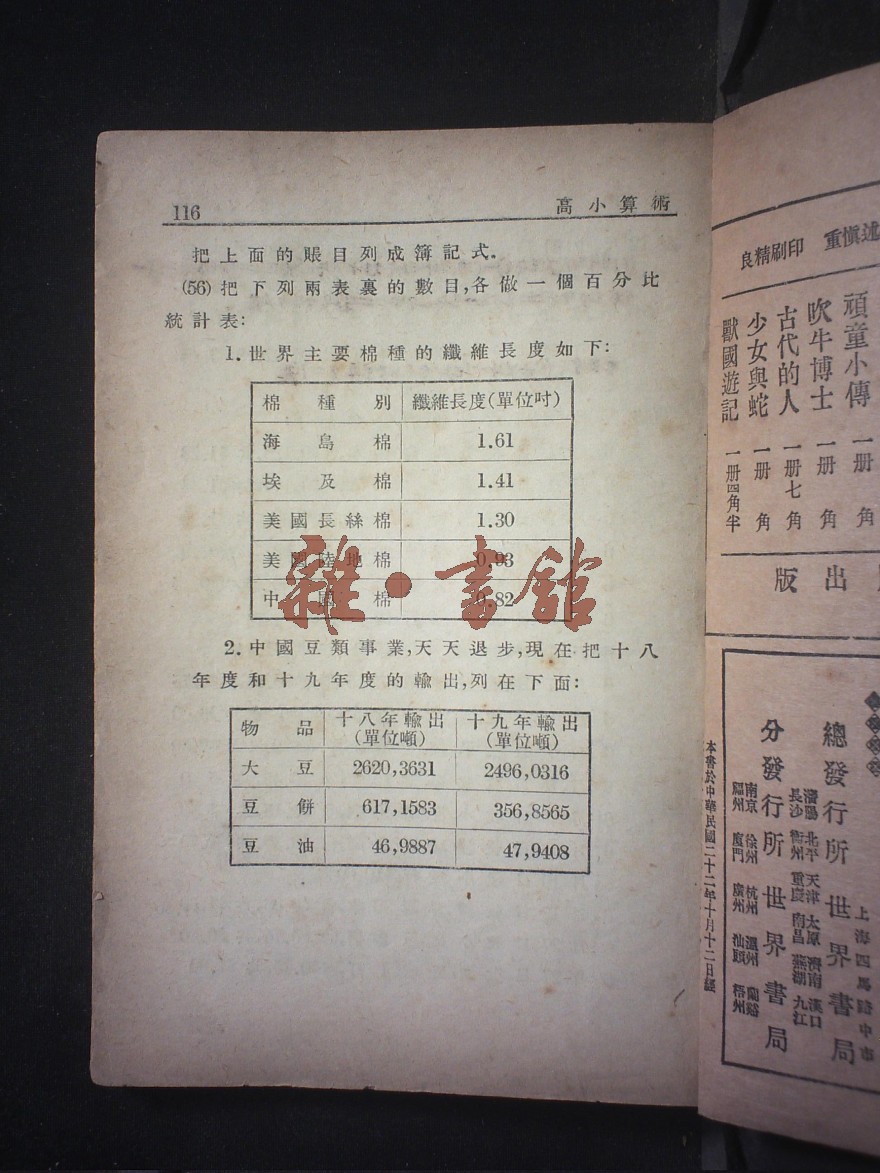 116
高小算術
把上面的賬目列成簿記式.
(56)把下列兩表裏的數目,各做一個百分比
統計表:
1.世界主要棉種的纖維長度如下:
棉種別 纖維長度(單位吋)
海島棉 1.61
埃及棉 1.41
美國長絲棉 1.30
美國陸地棉 0,93
中國棉 0,82
雜·書館
2.中國豆類事業,天天退步,現在把十八
年度和十九年度的輸出,列在下面:
物品 十八年輸出(單位噸) 十九年輸出(單位噸)
大豆 2620,3631 2496,0316
豆餅 617,1583 356,8565
豆油 46,9887 47,9408
良精刷印 重慎述
頑童小傳 一册 角
吹牛博士 一册 角
古代的人 一册七角
少女與蛇 一册 角
獸國遊記 一册四角半
版出
上海四馬路中市
總發行所 世界書局
瀋陽 北平 天津 太原 濟南 漢口
長沙 衡州 重慶 南昌 蕪湖 九江
分發行所 世界書局
南京 徐州 杭州 溫州 蘭谿
福州 廈門 廣州 汕頭 梧州
本書於中華民國二十二年十月十二日經